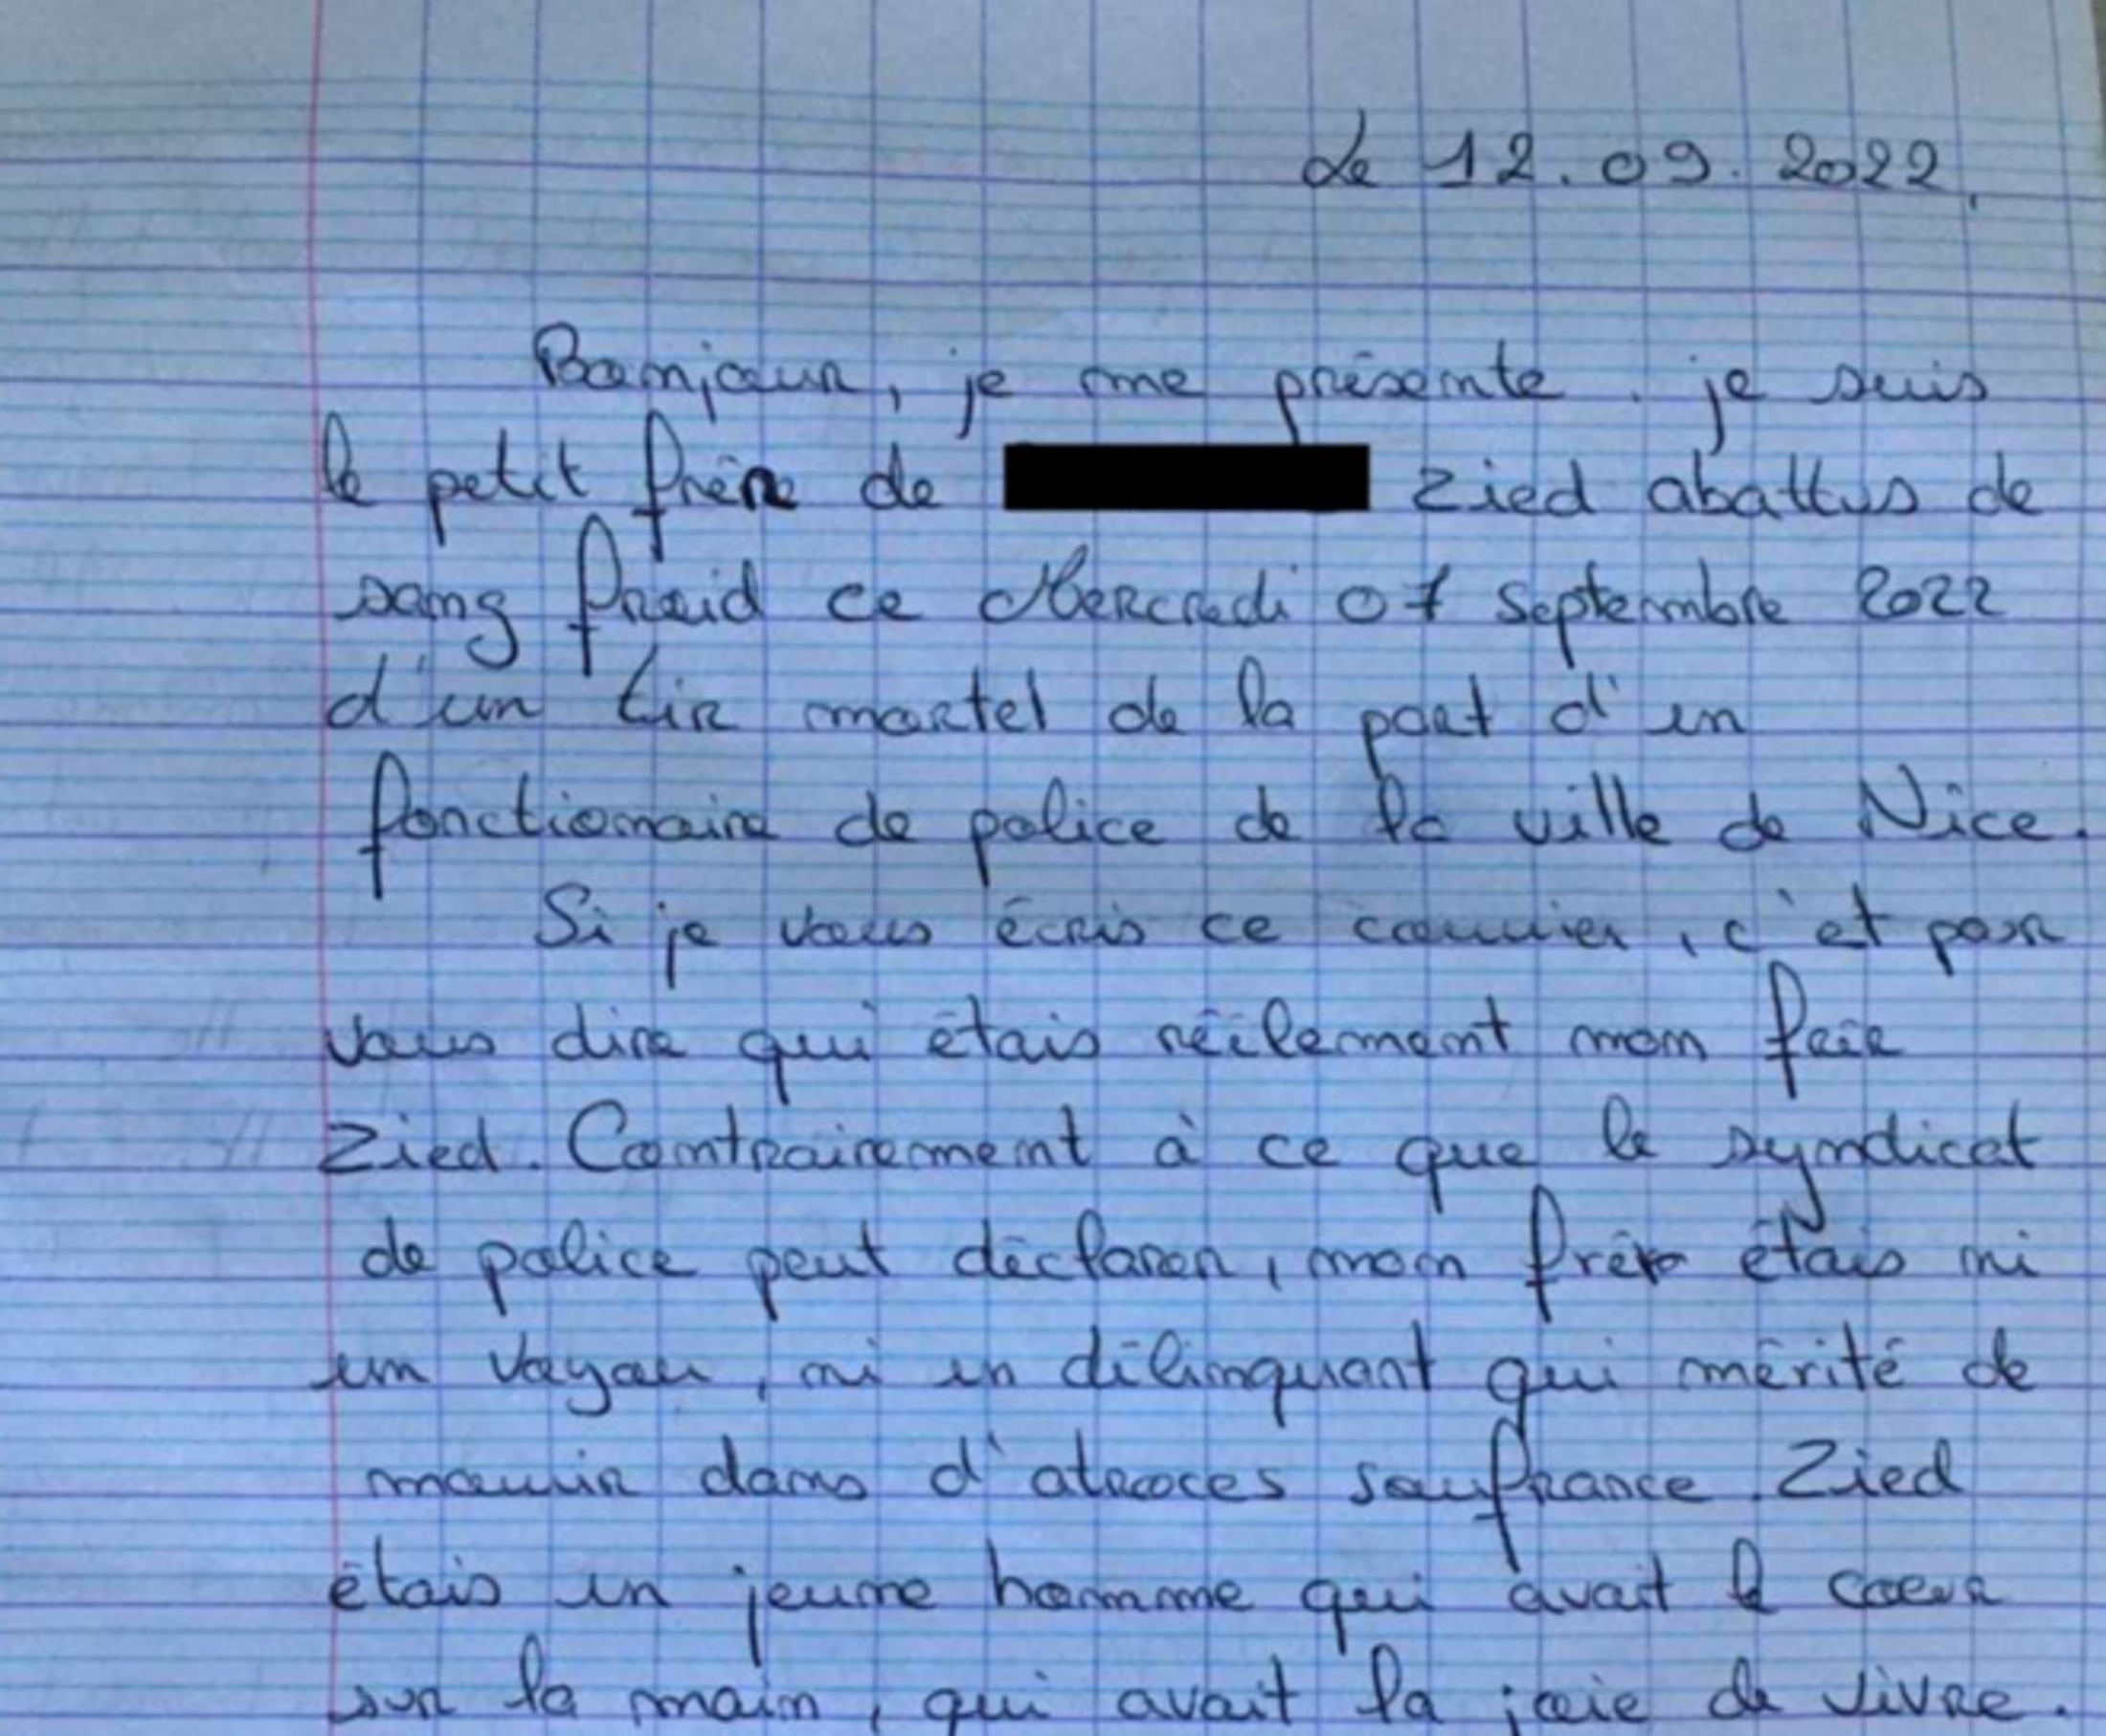 Le 12.09.2022.
Bonjour, je me présente. je suis
le petit frère de Zied abattus de
sang froid ce Mercredi 07 septembre 2022
d'un tir mortel de la part d'un
fonctionaire de police de la ville de Nice.
Si je vous écris ce courrier, c'et pour
vous dire qui étais réélement mon frère
Zied. Contrairement à ce que le syndicat
de police peut déclarer, mon frère étais ni
un voyou, ni un délinquant qui mérité de
mourir dans d'atroces soufrance. Zied
étais un jeune homme qui avait le coeur
sur la main, qui avait la joie de vivre.